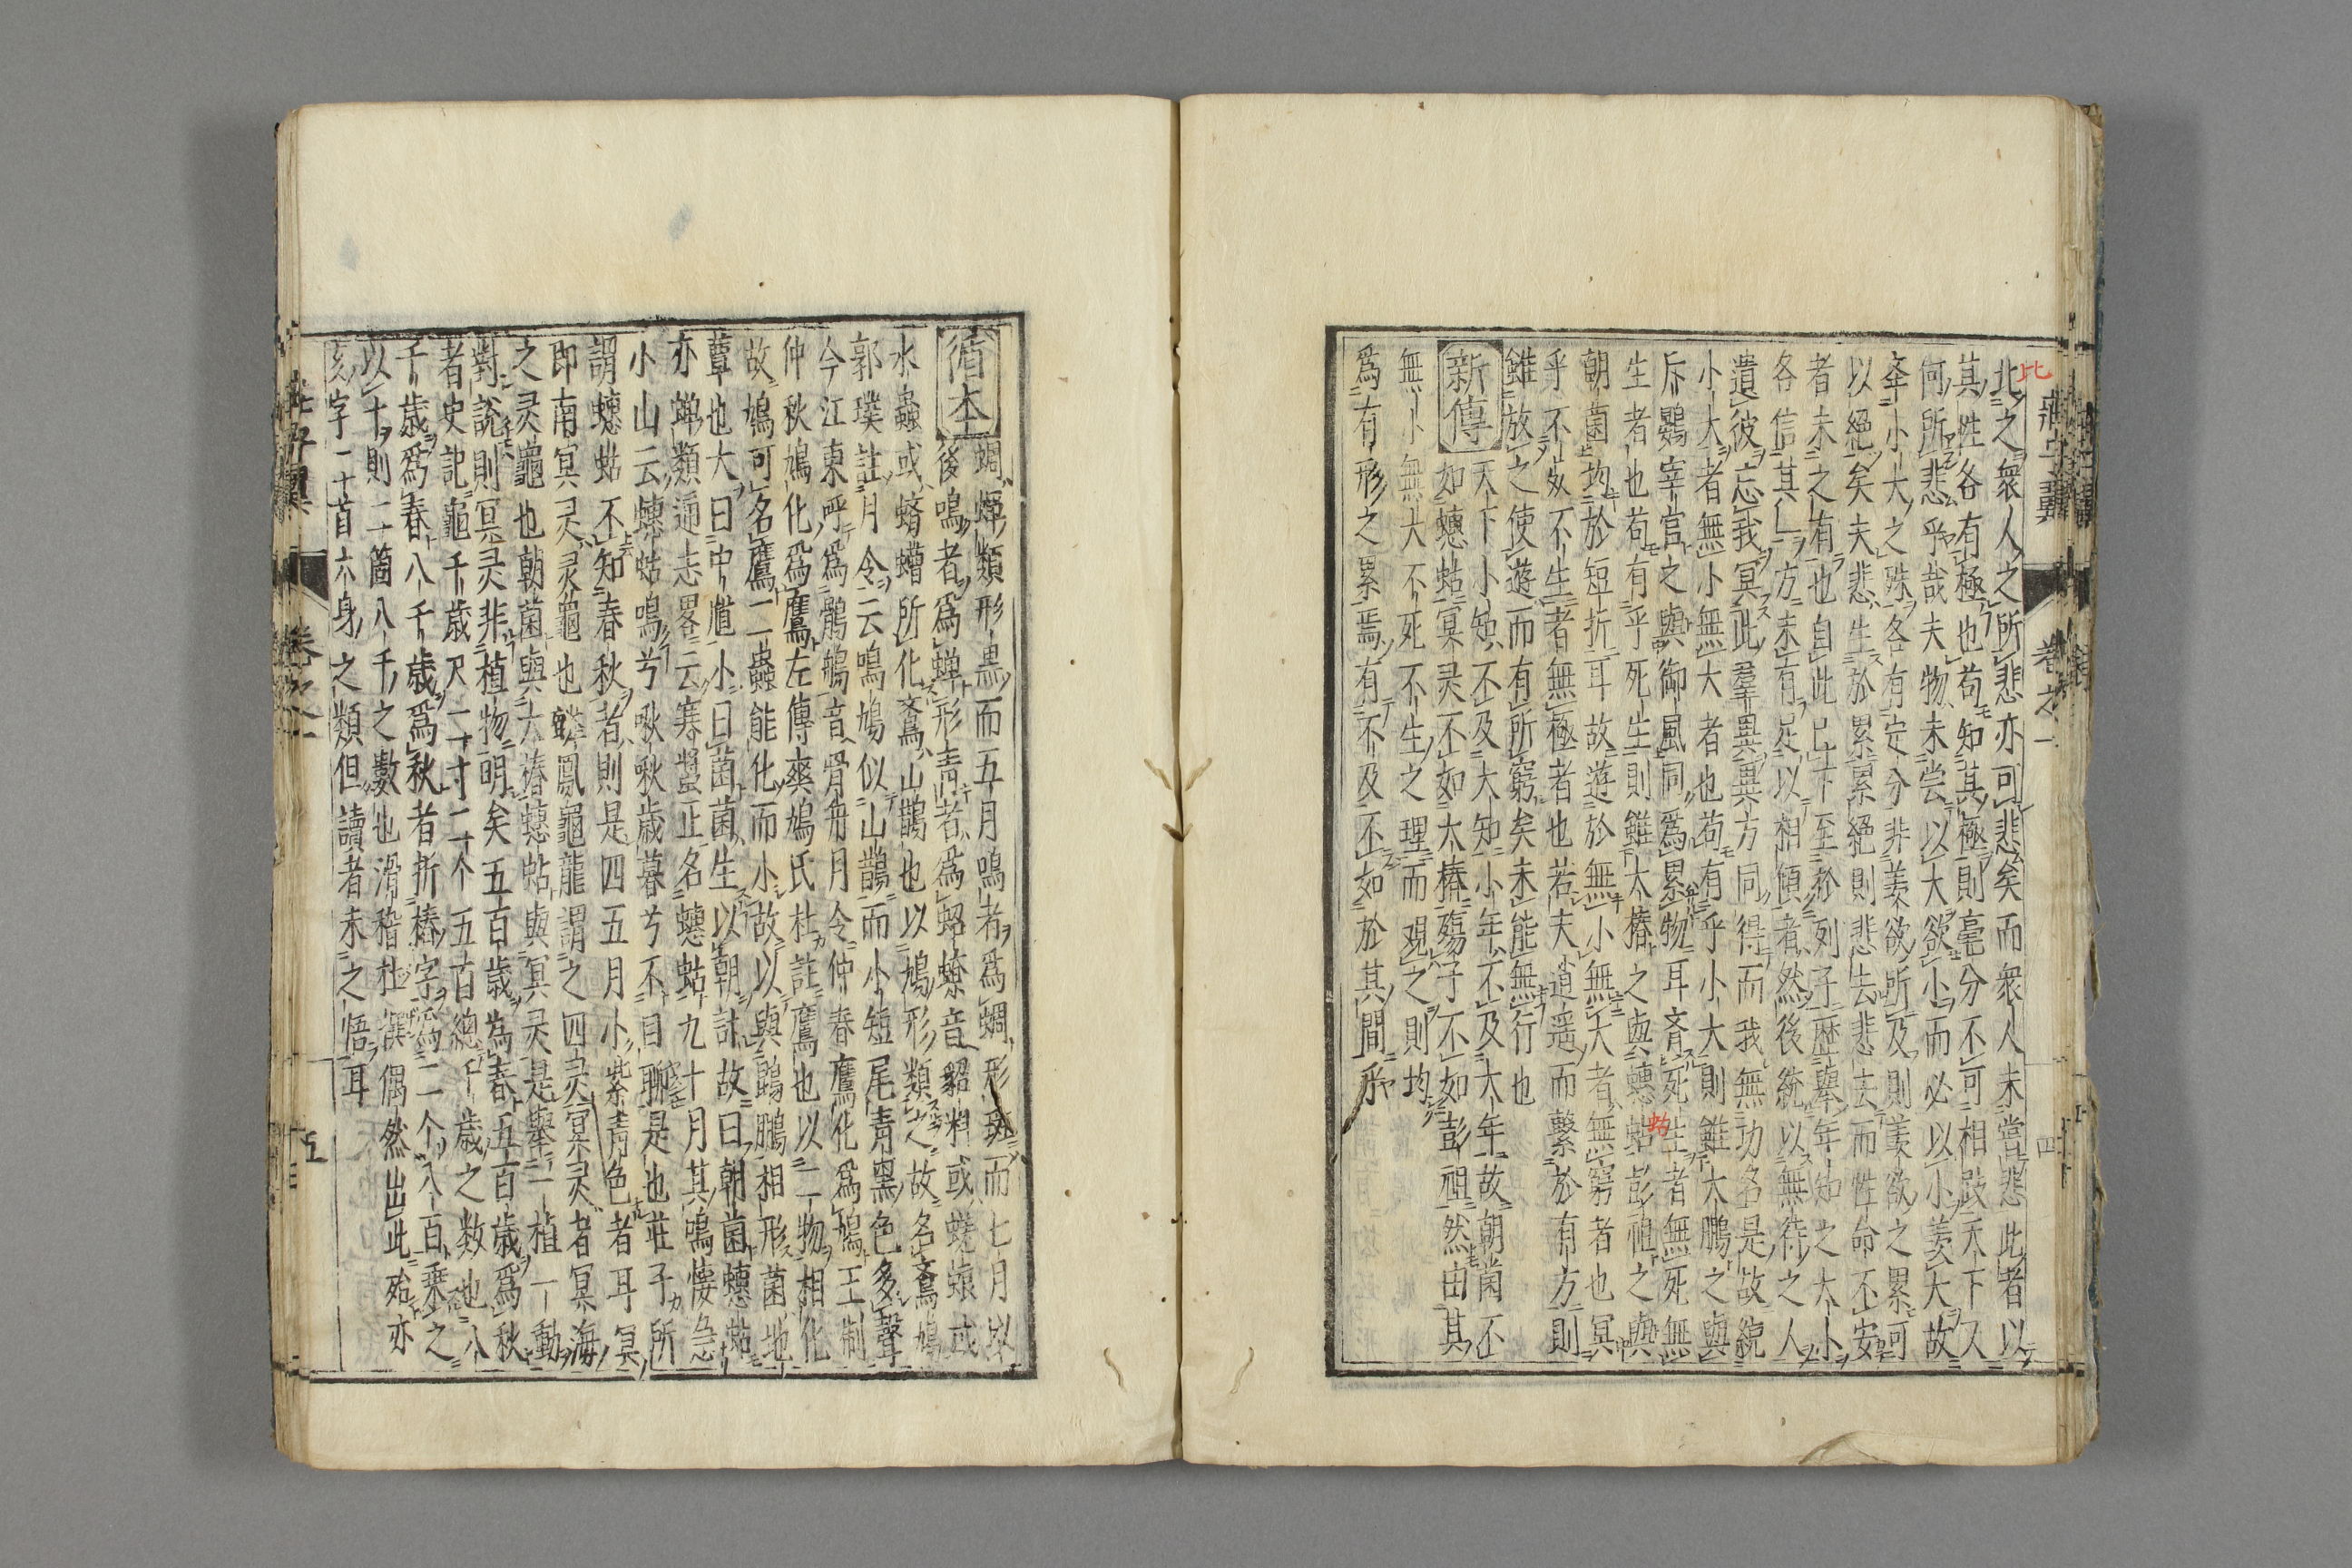 莊子翼 卷之一 四
北之衆人之所悲亦可悲矣而衆人未嘗悲此者以
其性各有極也苟知其極則毫分不可相跂天下又
何所悲乎哉夫物未尝以大欲小而必以小羨大故
奉小大之殊各有定分非羨欲所及則羨欲之累可
以絶矣夫悲生於累累絶則悲去悲去而性命不安
者未之有也自此已下至於列子歷舉年知之大小
各信其一方未有足以相傾者然後統以無待之人
遺彼忘我冥此羣異異方同得而我無功名是故統
小大者無小無大者也苟有乎小大則雖大鵬之與
斥鷃宰官之與御風同爲累物耳斉死生者無死無
生者也苟有乎死生則雖大椿之與蟪蛄彭祖之與
朝菌均於短折耳故遊於無小無大者無窮者也冥
乎不死不生者無極者也若夫逍遥而繫於有方則
雖放之使遊而有所窮矣未能無行也
新傳
天下小知不及大知小年不及大年故朝菌不
如蟪蛄冥灵不如大椿殤子不如彭祖然由其
無小無大不死不生之理而观之則均
爲有形之累焉有不及不如於其間乎
循本
蜩蟬類形黒而五月鳴者爲蜩形斑而七月以
後鳴者爲蟬形青者爲蛁蟟音貂料或蟯螂或
水蟲或蠐螬所化鷽山鵲也以鳩形類之故名鷽鳩
郭璞註月令云鳴鳩似山鵲而小短尾青黒色多聲
今江東呼爲鶻鵃音骨舟月令仲春鷹化爲鳩王制
仲秋鳩化爲鷹左傳爽鳩氏杜註鷹也以二物相化
故鳩可名鷹二蟲能化而小故以與鵾鵬相形菌地
蕈也大曰中馗小曰菌菌生以朝計故曰朝菌蟪蛄
亦蟬類通志畧云寒螿正名蟪蛄九十月其鳴悽急
小山云蟪蛄鳴兮啾啾歳暮兮不自聊是也莊子所
謂蟪蛄不知春秋者則是四五月小紫青色者耳冥
即南冥灵灵龜也麟鳳龜龍謂之四灵冥灵者冥海
之灵龜也朝菌與大椿蟪蛄與冥灵是舉一植一動
對說則冥灵非植物明矣五百歳為春五百歳爲秋
者史記龜千歳尺二寸二个五百總千歳之数也八
千歳爲春八千歳爲秋者折椿字為二个八百乗之
以十則二箇八千之數也滑稽杜撰偶然出此殆亦
亥字二首六身之類但讀者未之悟耳
莊子翼 卷之一 五
比
蛄